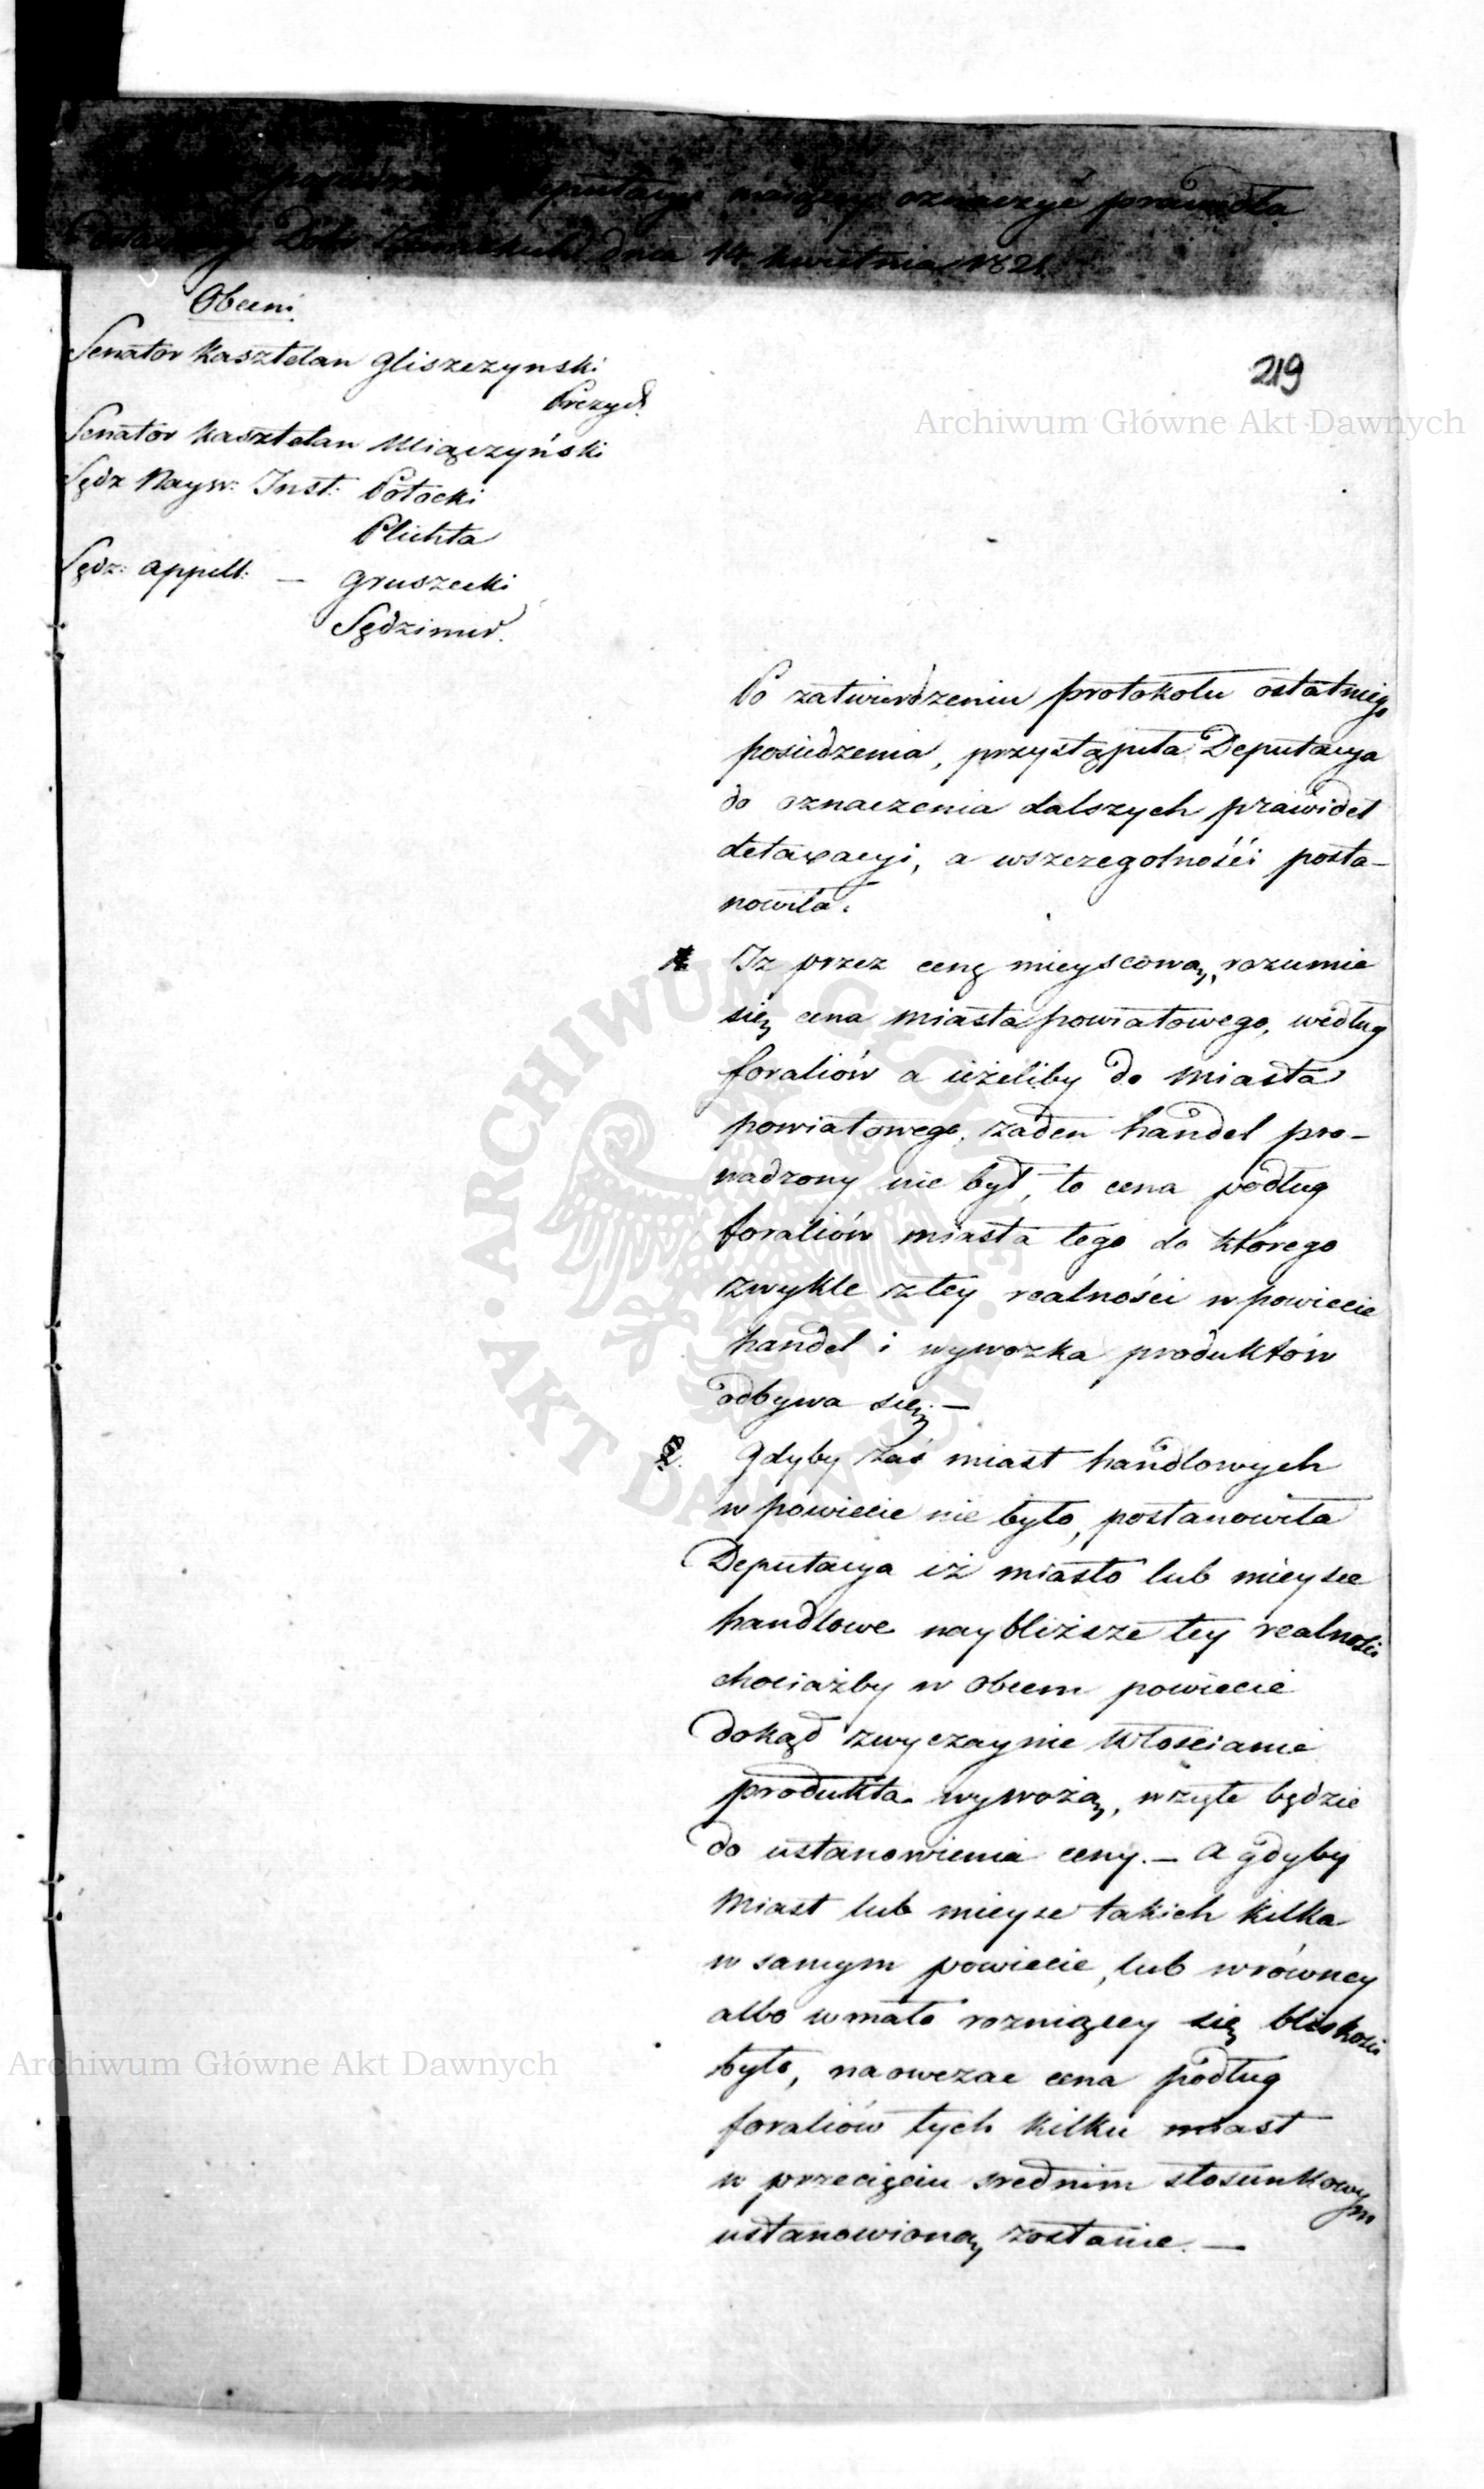 posiedzenia Deputacyi maiącey oznaczyć prawidła
Detaxacyi Dobr Ziemskich dnia 14 kwietnia 1821
Obecni
219
Senator Kasztelan Gliszczynski
Prezyd.
Archiwum Główne Akt Dawnych
Senator Kasztelan Miączyński
Sędz Nayw: Inst: Potocki
Plichta
Sędz: Appell: — Gruszecki
Sędzimir.
Po zatwierdzeniu protokołu ostatniego
posiedzenia, przystąpiła Deputacya
do oznaczenia dalszych prawideł
detaxacyi, a wszczegolnośći posta-
nowiła.
1. Iż przez cenę mieyscową, rozumie
się cena miasta powiatowego, według
foraliów a ieżeliby do miasta
powiatowego, żaden handel pro-
wadzony nie był, to cena podług
foraliów miasta tego do którego
zwykle z tey realności w powiecie
handel i wywozka produktów
odbywa się. —
2. Gdyby zaś miast handlowych
w powiecie nie było, postanowiła
Deputacya iż miasto lub mieysce
handlowe naybliższe tey realności
chociażby w obcem powiecie
dokąd zwyczaynie Włoscianie
produkta wywożą, wzięte będzie
do ustanowienia ceny. — A gdyby
Miast lub mieysc takich kilka
w samym powiecie, lub w równey
albo w mało rozniącey się bliskości
było, naowczas cena podług
foraliów tych kilku miast
w przecięciu srednim stosunkowym
ustanowioną zostanie. —
Archiwum Główne Akt Dawnych
ARCHIWUM GŁÓWNE AKT DAWNYCH